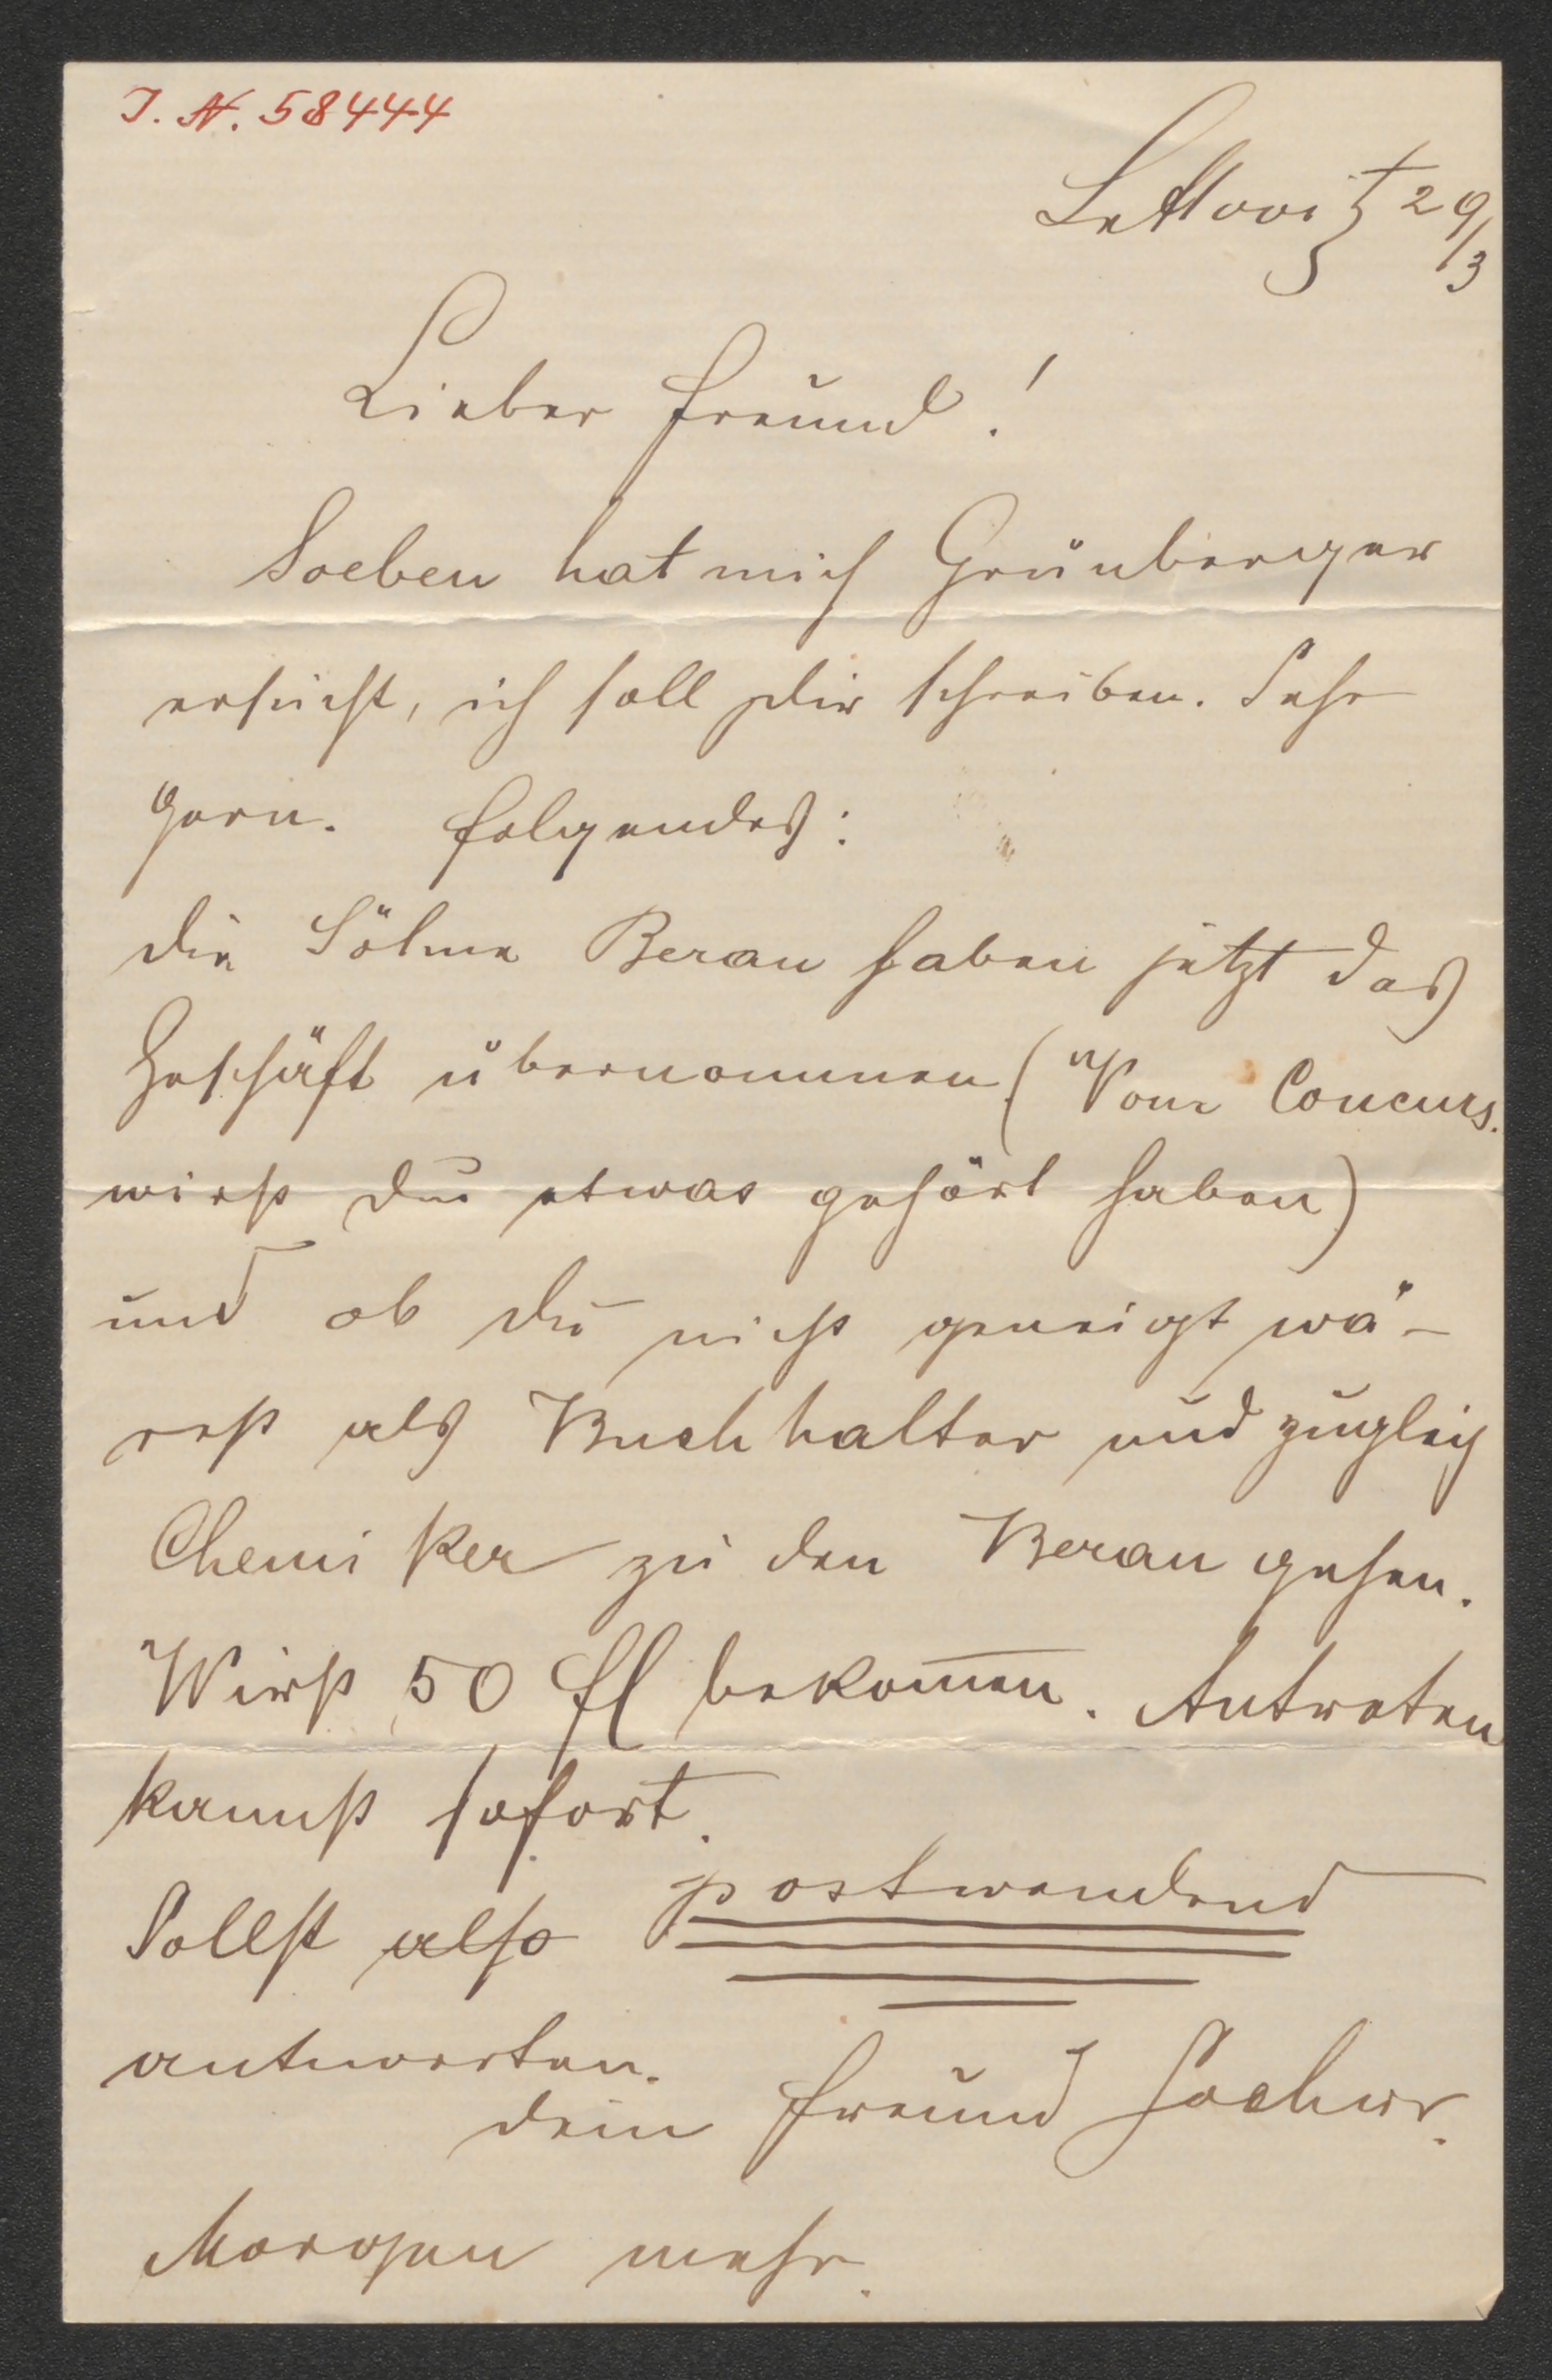 I. N. 58444
Lettowitz 29/3
Lieber Freund!
Soeben hat mich Grünberger
ersucht, ich soll Dir schreiben. Sehr
gern. Folgendes:
Die Söhne Beran haben jetzt das
Geschäft übernommen (Vom Concurs.
wirst Du etwas gehört haben)
und ob Du nicht geneigt wä-
rest als Buchhalter und zugleich
Chemiker zu den Beran gehen.
Wirst 50 fl bekom̅en. Antreten
kannst sofort.
Sollst also postwendend
antworten.
Dein Freund
Morgen mehr.